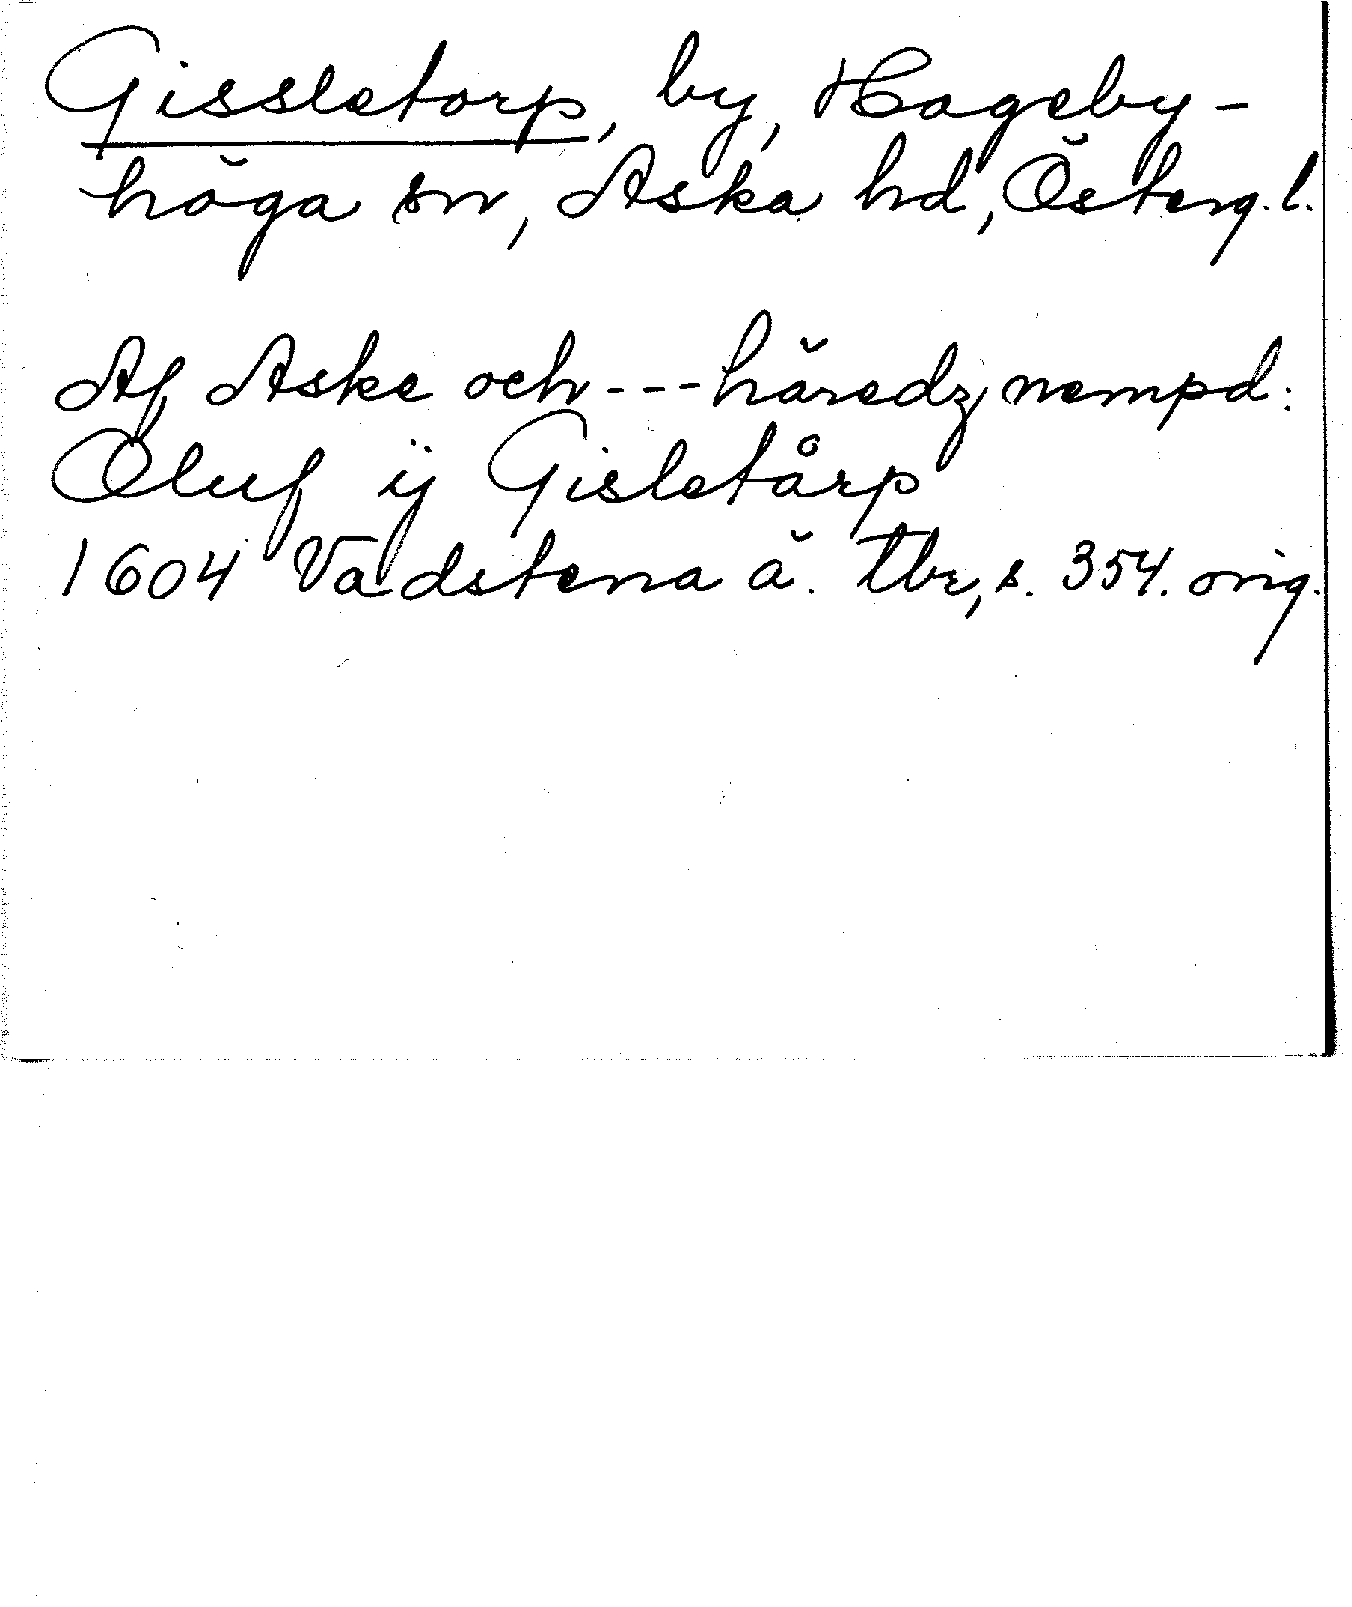 Gissletorp, by, Hageby-
höga sn, Aska hd, Österg.l.
Af Aske och --- häredz nempd:
Oluf ij Gisletårp
1604 Vadstena ä. tbr, s. 354. orig.